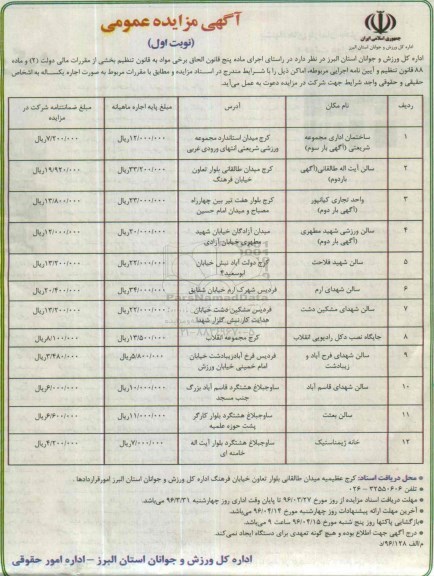 جمهوری اسلامی ایران
اداره کل ورزش و جوانان استان البرز
آگهی مزایده عمومی
(نوبت اول)
اداره کل ورزش و جوانان استان البرز در نظر دارد در راستای اجرای ماده پنج قانون الحاق برخی مواد به قانون تنظیم بخشی از مقررات مالی دولت (۲) و ماده
۸۸ قانون تنظیم و آیین نامه اجرایی مربوطه، اماکن ذیل را با شرایط مندرج در اسناد مزایده و مطابق با مقررات مربوط به صورت اجاره یکساله به اشخاص
حقیقی و حقوقی واجد شرایط جهت شرکت در مزایده دعوت به عمل می‌آید.
ردیف | نام مکان | آدرس | مبلغ پایه اجاره ماهیانه | مبلغ ضمانتنامه شرکت در مزایده
۱ | ساختمان اداری مجموعه شریعتی (آگهی بار سوم) | کرج میدان استاندارد مجموعه ورزشی شریعتی انتهای ورودی غربی | ۱۲/۰۰۰/۰۰۰ریال | ۷/۲۰۰/۰۰۰ریال
۲ | سالن آیت اله طالقانی(آگهی باردوم) | کرج میدان طالقانی بلوار تعاون خیابان فرهنگ | ۳۳/۲۰۰/۰۰۰ریال | ۱۹/۹۲۰/۰۰۰ریال
۳ | واحد تجاری کیانپور (آگهی بار دوم) | کرج بلوار هفت تیر بین چهارراه مصباح و میدان امام حسین | ۲۳/۰۰۰/۰۰۰ریال | ۱۳/۸۰۰/۰۰۰ریال
۴ | سالن ورزشی شهید مطهری (آگهی بار دوم) | میدان آزادگان خیابان شهید مطهری خیابان آزادی | ۲۰/۰۰۰/۰۰۰ریال | ۱۲/۰۰۰/۰۰۰ریال
۵ | سالن شهید فلاحت | کرج دولت آباد نبش خیابان ابوسعید۴ | ۲۲/۰۰۰/۰۰۰ریال | ۱۳/۲۰۰/۰۰۰ریال
۶ | سالن شهدای ارم | فردیس شهرک ارم خیابان شقایق | ۳۴/۰۰۰/۰۰۰ریال | ۲۰/۴۰۰/۰۰۰ریال
۷ | سالن شهدای مشکین دشت | فردیس مشکین دشت خیابان هدایت کار نبش گلزار شهدا | ۲۲/۰۰۰/۰۰۰ریال | ۱۳/۲۰۰/۰۰۰ریال
۸ | جایگاه نصب دکل رادیویی انقلاب | کرج مجموعه انقلاب | ۱۳/۵۰۰/۰۰۰ریال | ۸/۱۰۰/۰۰۰ریال
۹ | سالن شهدای فرح آباد و زیبادشت | فردیس فرح آبادزیبادشت خیابان امام خمینی خیابان ورزش | ۵/۸۰۰/۰۰۰ریال | ۳/۴۸۰/۰۰۰ریال
۱۰ | سالن شهدای قاسم آباد | ساوجبلاغ هشتگرد قاسم آباد بزرگ جنب مسجد | ۱۰/۰۰۰/۰۰۰ریال | ۶/۰۰۰/۰۰۰ریال
۱۱ | سالن بعثت | ساوجبلاغ هشتگرد بلوار کارگر پشت حوزه علمیه | ۱۱/۰۰۰/۰۰۰ریال | ۶/۶۰۰/۰۰۰ریال
۱۲ | خانه ژیمناستیک | ساوجبلاغ هشتگرد بلوار آیت اله خامنه ای | ۷/۰۰۰/۰۰۰ریال | ۴/۲۰۰/۰۰۰ریال
* محل دریافت اسناد: کرج عظیمیه میدان طالقانی بلوار تعاون خیابان فرهنگ اداره کل ورزش و جوانان استان البرز امورقراردادها.
* تلفن ۳۲۵۵۰۶۰۶ - ۰۲۶
* مهلت دریافت اسناد مزایده از روز مورخ ۹۶/۰۳/۲۷ تا پایان وقت اداری روز چهارشنبه ۹۶/۳/۳۱ می‌باشد.
* آخرین مهلت ارائه پیشنهادات روز چهارشنبه مورخ ۹۶/۰۴/۱۴ می‌باشد.
*بازگشایی پاکتها روز پنج شنبه مورخ ۹۶/۰۴/۱۵ ساعت ۹ می‌باشد.
* درج آگهی جهت اطلاع بوده و هیچ گونه تعهدی برای دستگاه ایجاد نمی‌کند.
م/الف ۹۶/۱۲۸/د
اداره کل ورزش و جوانان استان البرز - اداره امور حقوقی